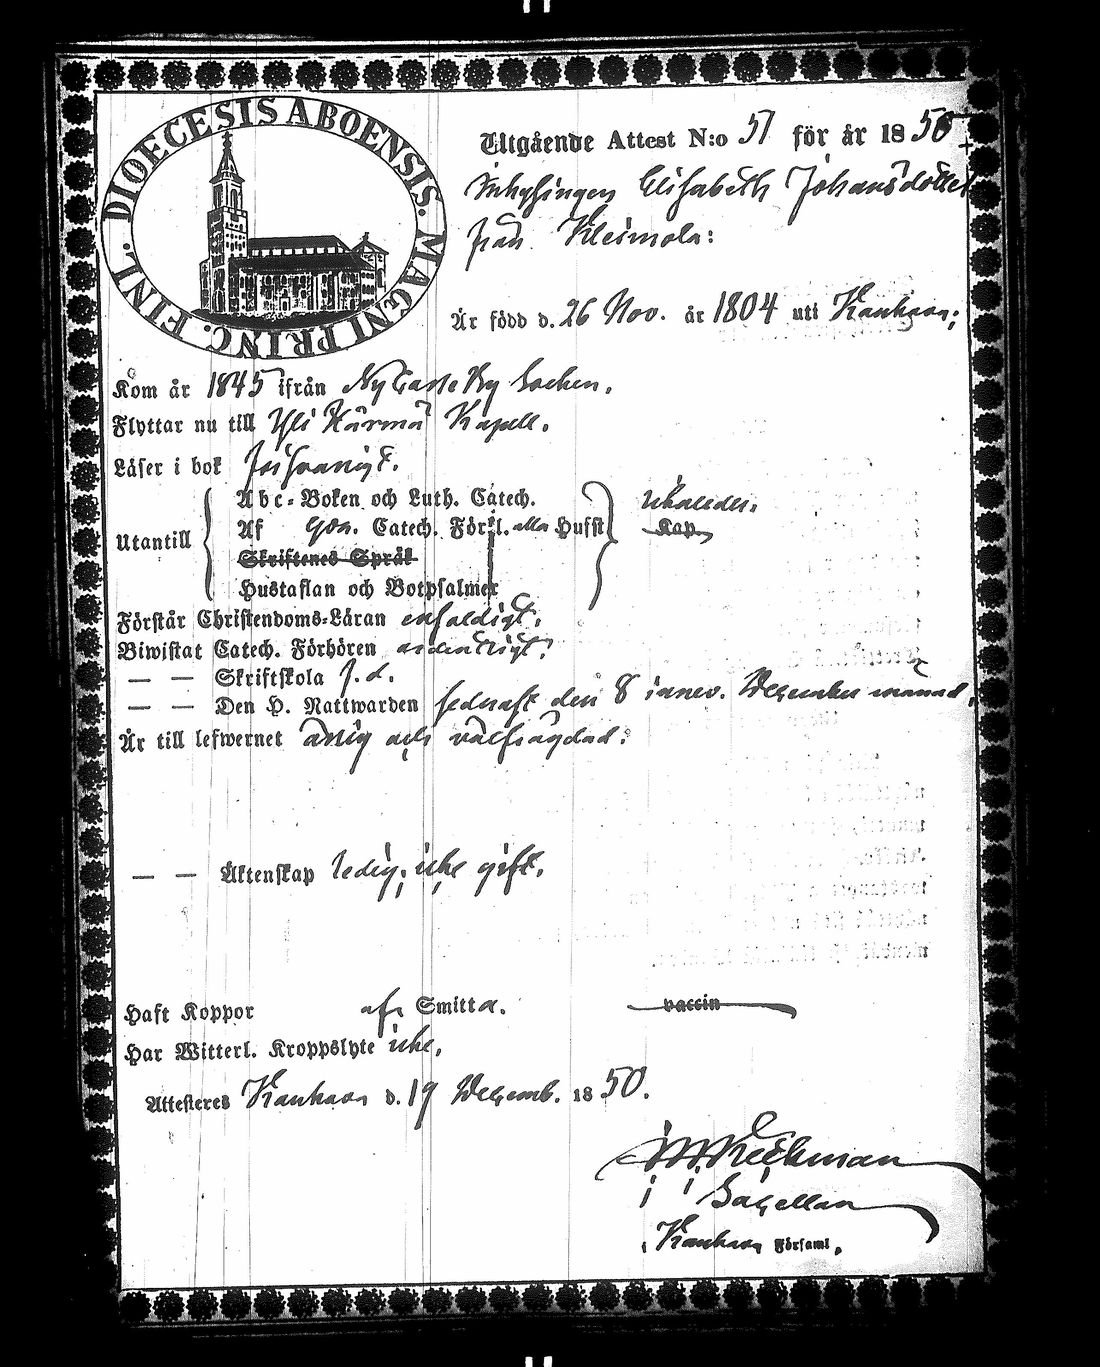 DIOECESIS ABOENSIS. MAGNI PRINC. FINL.
Utgående Attest N:o 51 för år 1850
Inhysingen Elisabeth Johansdotter
från Kleimola:
Är född d. 26 Nov. år 1804 uti Kauhava;
Kom år 1845 ifrån NyCarleby Socken.
Flyttar nu till Yli Härmä Kapell.
Läser i bok försvarligt.
Utantill
Abc-Boken och Luth. Catech.
Af Gen. Catech. Förkl. alla Hufst
Skriftenes Språk
Hustaflan och Botpsalmer
utaledes.
Kap
Förstår Christendoms-Läran enfaldigt.
Biwistat Catech. Förhören ordentligt.
— — Skriftskola f. d.
— — Den H. Nattwarden sednast den 8 innev. December månad.
Är till lefwernet ärlig och välfrägdad.
— — Äktenskap ledig; icke gift.
Haft Koppor af Smitta. vaccin
Har Witterl. Kroppslyte icke.
Attesteres Kauhava d. 19 Decemb. 1850.
Sacellan
Kauhava Församl.